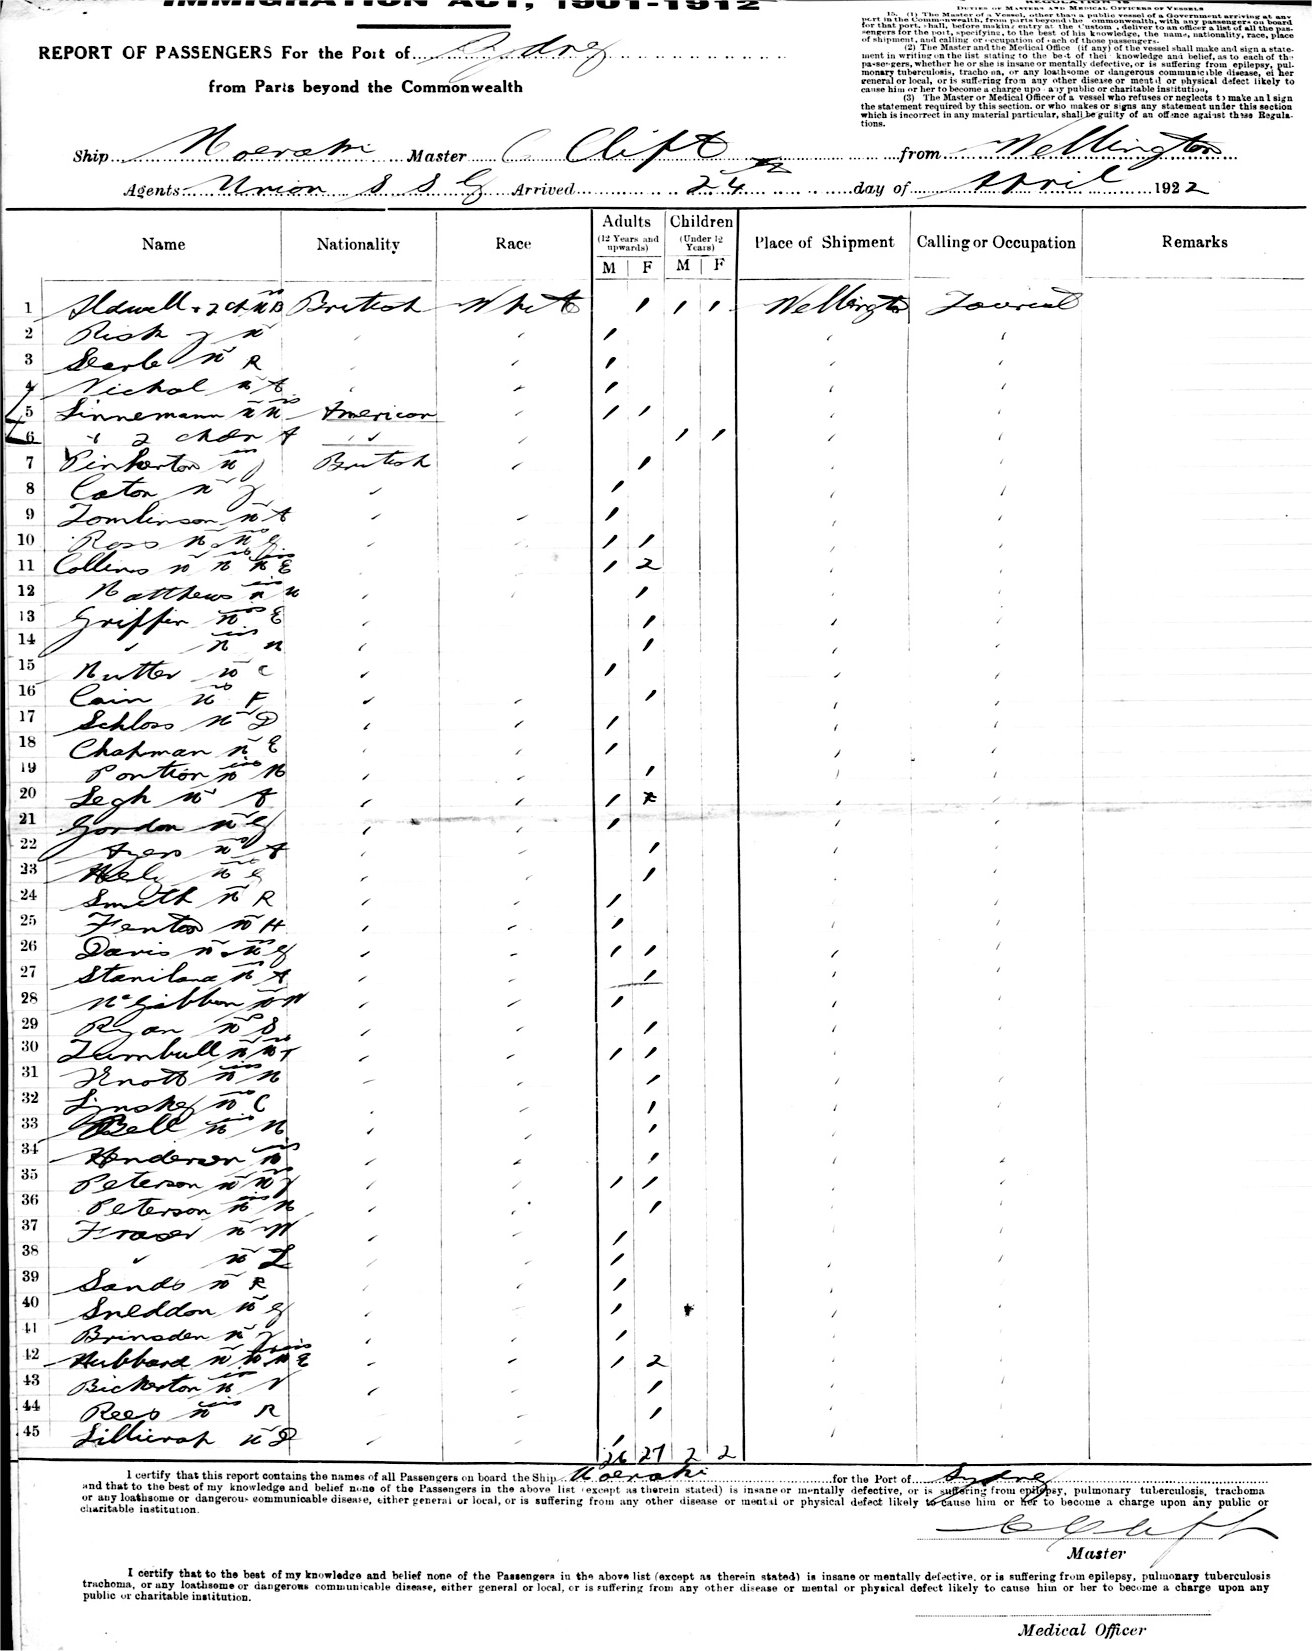 IMMIGRATION ACT, 1901-1912
REGULATION 15
DUTIES OF MASTERS AND MEDICAL OFFICERS OF VESSELS
15. (1) The Master of a Vessel, other than a public vessel of a Government arriving at any
port in the Commonwealth, from parts beyond the Commonwealth, with any passengers on board
for that port, shall, before making entry at the Custom , deliver to an officer a list of all the pas-
sengers for the port, specifying, to the best of his knowledge, the name, nationality, race, place
of shipment, and calling or occupation of each of those passengers.
(2) The Master and the Medical Office (if any) of the vessel shall make and sign a state-
ment in writing on the list stating to the best of their knowledge and belief, as to each of the
pa-sergers, whether he or she is insane or mentally defective, or is suffering from epilepsy, pul-
monary tuberculosis, trachoma, or any loathsome or dangerous communicible disease, either
general or local, or is suffering from any other disease or mental or physical defect likely to
cause him or her to become a charge upon any public or charitable institution,
(3) The Master or Medical Officer of a vessel who refuses or neglects to make an l sign
the statement required by this section, or who makes or signs any statement under this section
which is incorrect in any material particular, shall be guilty of an offence against these Regula-
tions.
REPORT OF PASSENGERS For the Port of Sydney
from Parts beyond the Commonwealth
Ship Moeraki Master C Clift from Wellington
Agents Union S S Co Arrived 24th day of April 1922
Name Nationality Race Adults (12 Years and upwards) M F Children (Under 12 Years) M F Place of Shipment Calling or Occupation Remarks
1 Aldwell + 2 ch Mrs B British White 1 1 1 Wellington Tourist
2 Risk J Mr 1
3 Searle Mr R 1
4 Nichol Mr A 1
5 Linnemann Mr Mrs American 1 1
6 " 2 chdn A " 1 1
7 Pinkerton Miss J British 1
8 Caton Mr J 1
9 Tomlinson Mr A 1
10 Ross Mr Mrs G 1 1
11 Collins Mr Mrs Miss E 1 2
12 Matthews Miss M 1
13 Griffin Mrs E 1
14 " Miss M 1
15 Nutter Mr C 1
16 Cain Mrs F 1
17 Schloss Mr D 1
18 Chapman Mr E 1
19 Pontion Miss M 1
20 Legh Mr A 1
21 Gordon Mr G 1
22 Ayers Mrs A 1
23 Hely Mrs G 1
24 Smith Mr R 1
25 Fenton Mr H 1
26 Davis Mr & Mrs G 1 1
27 Staniland Mrs A 1
28 McGibbon Mr W 1
29 Ryan Mrs S 1
30 Turnbull Mr Mrs T 1 1
31 Knott Miss M 1
32 Linskey Mrs C 1
33 Bell Miss M 1
34 Henderson Miss 1
35 Peterson Mr Mrs J 1 1
36 Peterson Miss M 1
37 Fraser Mr W 1
38 " Mr L 1
39 Sands Mr R 1
40 Sneddon Mr G 1
41 Brinsden Mr J 1
42 Hubbard Mr Mrs Miss E 1 2
43 Bickerton Miss V 1
44 Rees Miss R 1
45 Lillicrap Mr D 1
26 27 2 2
I certify that this report contains the names of all Passengers on board the Ship Moeraki for the Port of Sydney
and that to the best of my knowledge and belief none of the Passengers in the above list (except as therein stated) is insane or mentally defective, or is suffering from epilepsy, pulmonary tuberculosis, trachoma
or any loathsome or dangerous communicable disease, either general or local, or is suffering from any other disease or mental or physical defect likely to cause him or her to become a charge upon any public or
charitable institution.
C Clift
Master
I certify that to the best of my knowledge and belief none of the Passengers in the above list (except as therein stated) is insane or mentally defective, or is suffering from epilepsy, pulmonary tuberculosis
trachoma, or any loathsome or dangerous communicable disease, either general or local, or is suffering from any other disease or mental or physical defect likely to cause him or her to become a charge upon any
public or charitable institution.
Medical Officer